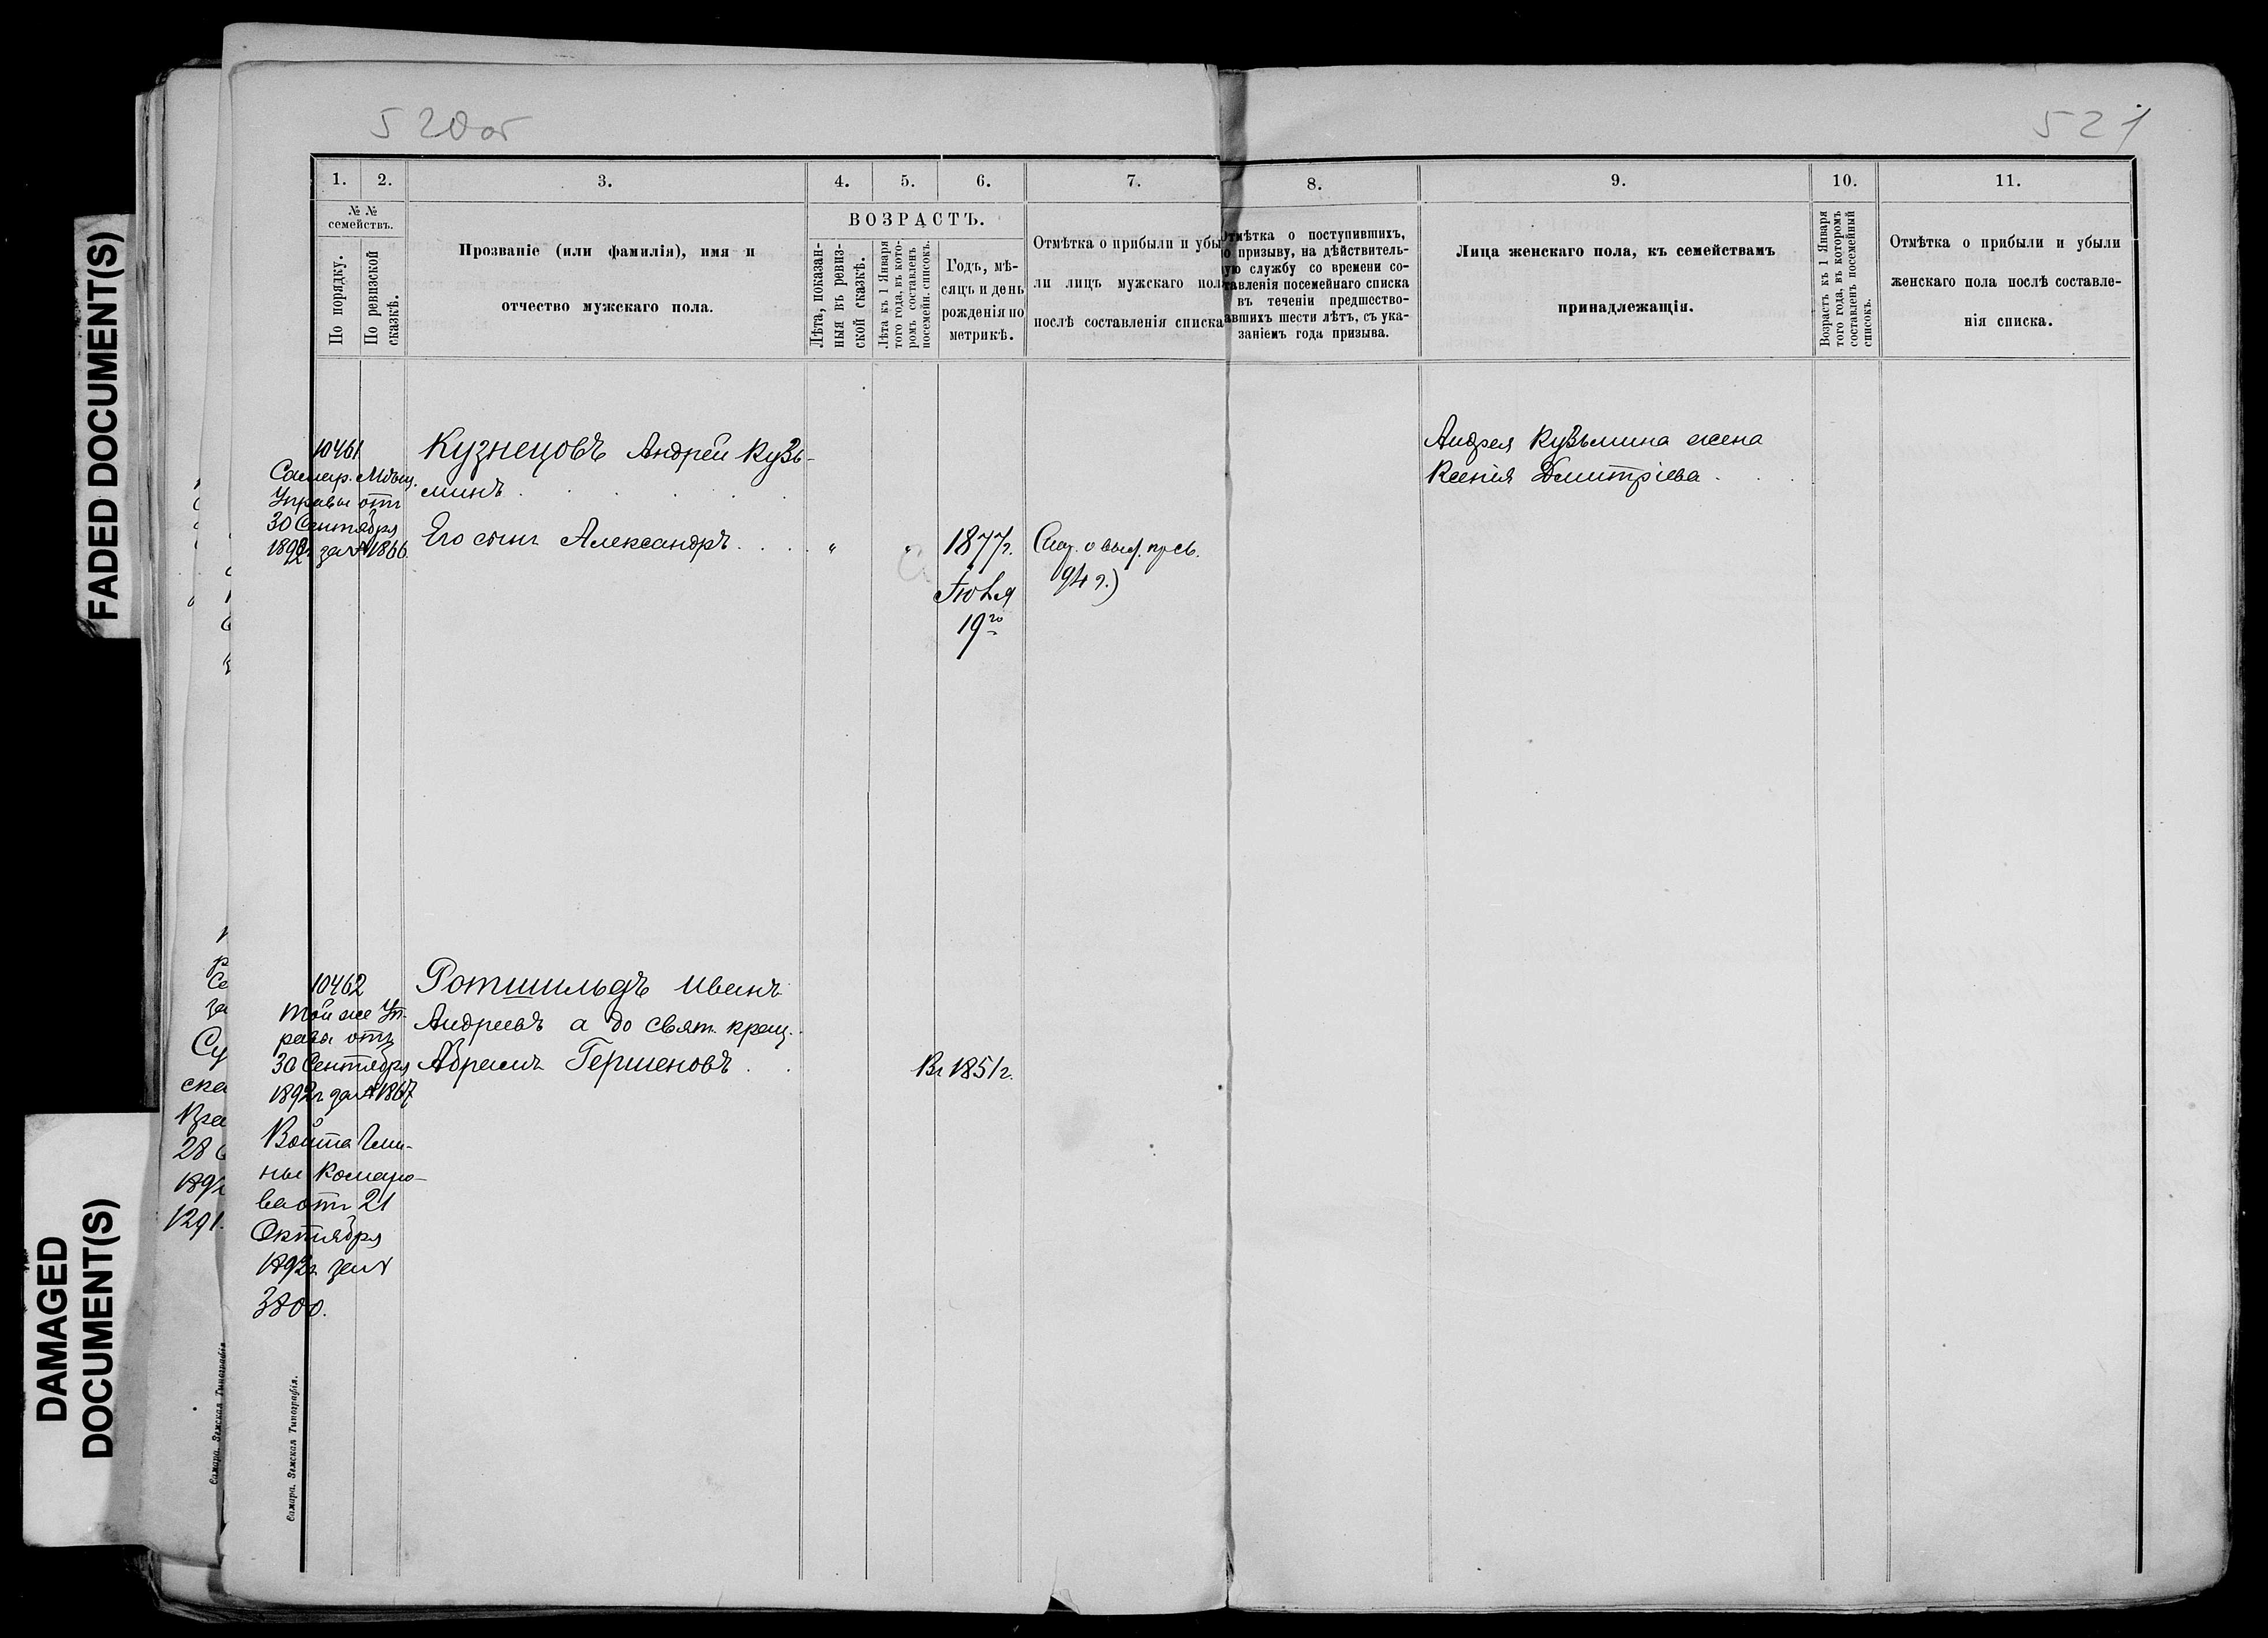 520об
521
1.
2.
3.
4.
5.
6.
7.
8.
9.
10.
11.
№ №
семействъ.
По порядку.
По ревизской
сказкѣ.
Прозваніе (или фамилія), имя и
отчество мужскаго пола.
ВОЗРАСТЪ.
Лѣта, показан-
ныя въ ревиз-
ской сказкѣ.
Лѣта къ 1 Января
того года, въ кото-
ромъ составленъ
посемейн. списокъ.
Годъ, мѣ-
сяцъ и день
рожденія по
метрикѣ.
Отмѣтка о прибыли и убы
ли лицъ мужскаго пола
послѣ составленія списка
Отмѣтка о поступившихъ,
по призыву, на дѣйствитель-
ую службу со времени со-
тавленія посемейнаго списка
въ теченіи предшество-
авшихъ шести лѣтъ, съ ука-
заніемъ года призыва.
Лица женскаго пола, къ семействамъ
принадлежащія.
Возрастъ къ 1 Января
того года, въ которомъ
составленъ посемейный
списокъ.
Отмѣтка о прибыли и убыли
женскаго пола послѣ составле-
нія списка.
10461
Самар. Мѣщ.
Управы отъ
30 Сентября
1892г за № 1866
Кузнецовъ Андрей Кузь-
минъ
Его сынъ Александръ
" "
1877г.
Іюля
19го
94 г.)
Андрея Кузьмина жена
Ксенія Дмитріева
10462
той же Уп-
равы отъ
30 Сентября
1892г за № 1867
Войта Гми-
ны Комаро-
ва отъ 21
Октября
1892г за №
3800.
Ротшильдъ Иванъ
Андреевъ а до свят. крещ.
Абрамъ Гершеновъ
Въ 1851г.
Самара. Земская Типографія.
Самара. Земская Типографія
Су
ска
28
189
1291.
FADED DOCUMENT(S)
DAMAGED
DOCUMENT(S)